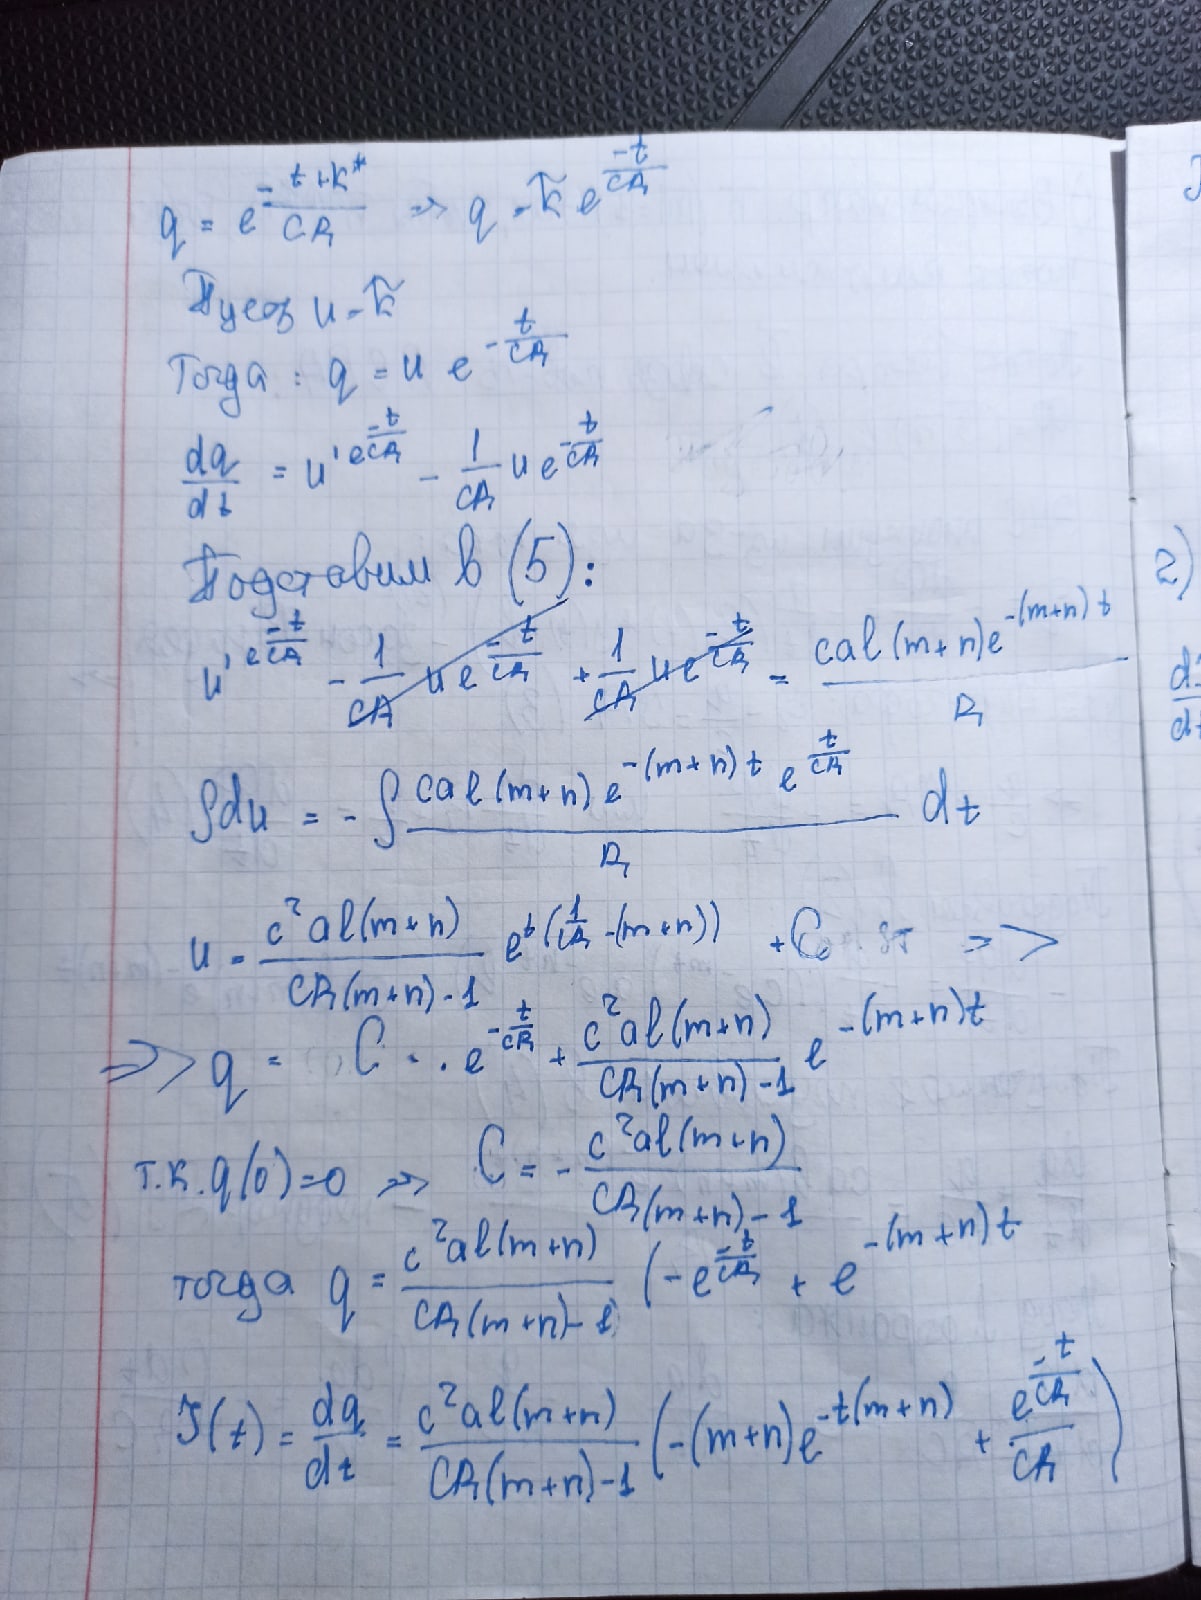 q = e^{-\frac{t+k*}{CR}} => q = \tilde{k} e^{\frac{-t}{CR}}
Пусть u = \tilde{k}
Тогда: q = u e^{-\frac{t}{CR}}
\frac{dq}{dt} = u' e^{-\frac{t}{CR}} - \frac{1}{CR} u e^{-\frac{t}{CR}}
Подставим в (5):
u' e^{-\frac{t}{CR}} - \frac{1}{CR} u e^{-\frac{t}{CR}} + \frac{1}{CR} u e^{-\frac{t}{CR}} = \frac{cal(m+n)e^{-(m+n)t}}{R}
∫du = -∫ \frac{cal(m+n) e^{-(m+n)t} e^{\frac{t}{CR}}}{R} dt
u = \frac{c^2 al(m+n)}{CR(m+n)-1} e^{t(\frac{1}{CR}-(m+n))} + C =>
=> q = C · e^{-\frac{t}{CR}} + \frac{c^2 al(m+n)}{CR(m+n)-1} e^{-(m+n)t}
т.к. q(0)=0 => C = -\frac{c^2 al(m+n)}{CR(m+n)-1}
тогда q = \frac{c^2 al(m+n)}{CR(m+n)-1} (-e^{-\frac{t}{CR}} + e^{-(m+n)t}
I(t) = \frac{dq}{dt} = \frac{c^2 al(m+n)}{CR(m+n)-1} (-(m+n)e^{-t(m+n)} + \frac{e^{-\frac{t}{CR}}}{CR})
2)